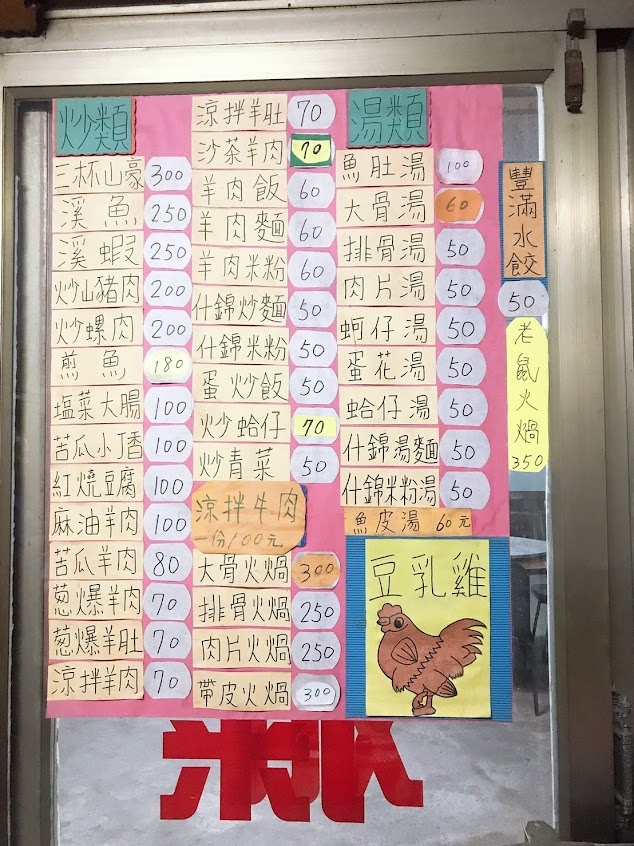 炒類
三杯山豪 300
溪魚 250
溪蝦 250
炒山豬肉 200
炒螺肉 200
煎魚 180
塩菜大腸 100
苦瓜小丁香 100
紅燒豆腐 100
麻油羊肉 100
苦瓜羊肉 80
葱爆羊肉 70
葱爆羊肚 70
涼拌羊肉 70
涼拌羊肚 70
沙茶羊肉 70
羊肉飯 60
羊肉麵 60
羊肉米粉 60
什錦炒麵 50
什錦米粉 50
蛋炒飯 50
炒蛤仔 70
炒青菜 50
涼拌牛肉
一份100元
大骨火鍋 300
排骨火鍋 250
肉片火鍋 250
帶皮火鍋 300
湯類
魚肚湯 100
大骨湯 60
排骨湯 50
肉片湯 50
蚵仔湯 50
蛋花湯 50
蛤仔湯 50
什錦湯麵 50
什錦米粉湯 50
魚皮湯 60元
豆乳雞
豐滿水餃
50
老鼠火鍋
350